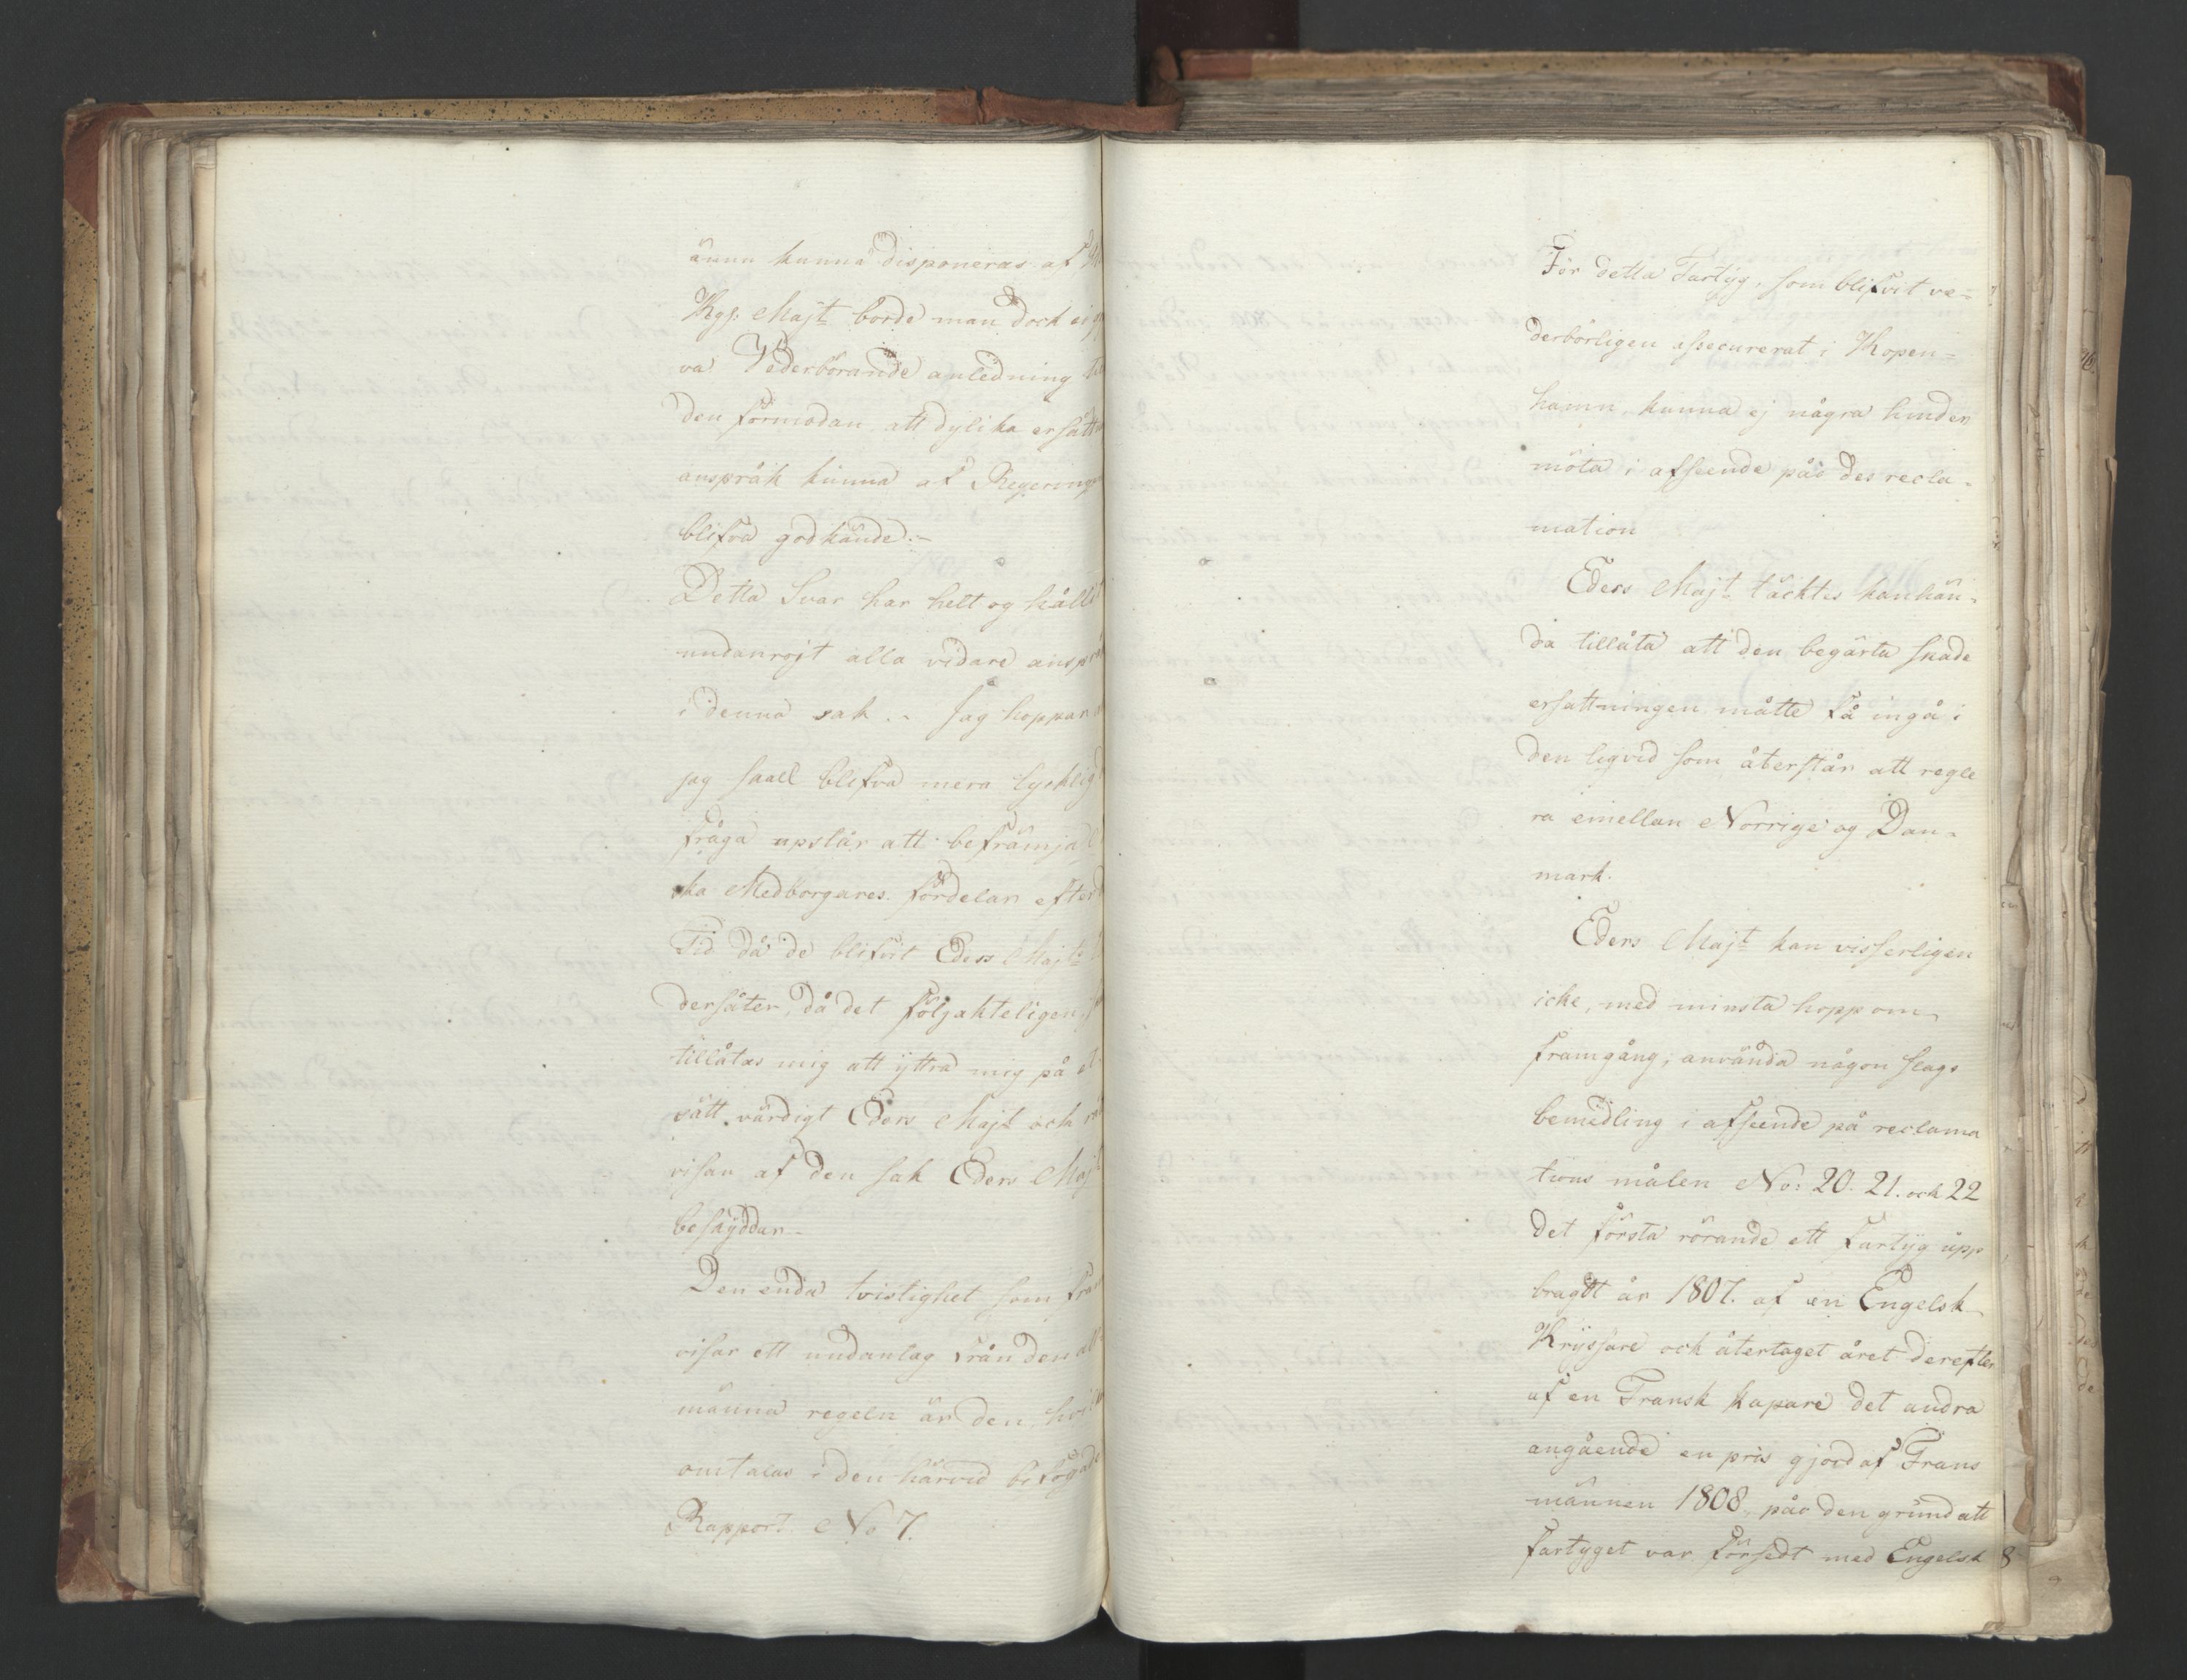 ännu kunna disponeras af
Kgs: Majt borde man dock ej
va Vederbörande anledning
den förmodan, att dylika ersättn
anspråk kunna af Regering
blifva godkände:-
Detta Svar har helt og hållit
undanrojt alla vidare anspr
i denna sak.- Jag hoppar
jag skall blifva mera lycklig
fråga upstår att befrämja
ka Medborgares fördelar efter
Tid då de blifvit Eders Majts
dersåter, då det följakteligen
tillåtas mig att yttra mig på et
sätt värdigt Eders Majt och
visan af den sak Eders Majt
beskyddar.-
Den enda tvistighet som fra
visar ett undantag från den all
männa regeln är den, hvil
omtalas i den härvid bifogade
Rapport No 7.
För detta Fartyg, som blifvit ve-
derbörligen assecurerat i Kopen-
hamn, kunna ej några hinder
möta i afseende på des recla-
mation
Eders Majt täcktes kanhän-
da tillåta att den begärta skade
ersattningen måtte få ingå i
den liqvid som återstår att regle
ra emellan Norrige og Dan-
mark.
Eders Majt kan visserligen
icke, med minsta hopp om
framgång, använda någon slags
bemedling i afseende på reclama
tions målen No: 20. 21. och 22
det första rörande ett Fartyg upp
bragdt år 1807. af en Engelsk
Kryssare och återtaget året derefter
af en Fransk kapare det andra
angåénde en pris gjord af Frans
männen 1808 på den grund att
fartyget var försedt med Engelsk